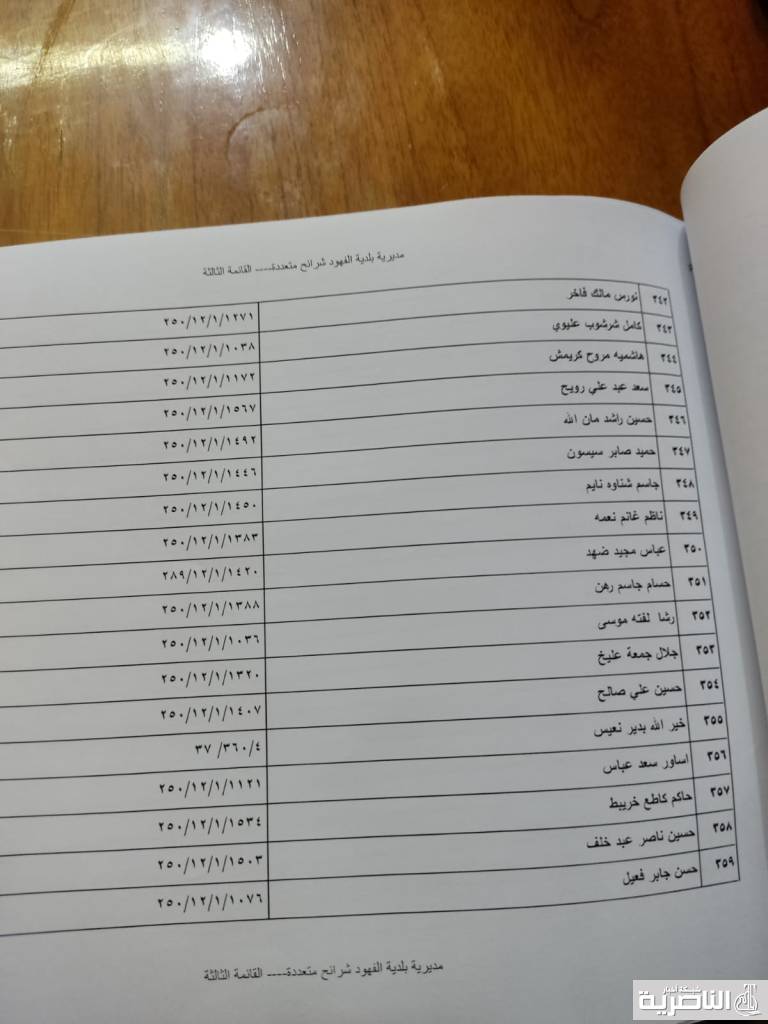 مديرية بلدية الفهود شرائح متعددة---- القائمة الثالثة
٣٤٢ نورس مالك فاخر ٢٥٠/١٢/١/١٢٧١
٣٤٣ كامل شرشوب عليوي ٢٥٠/١٢/١/١٠٣٨
٣٤٤ هاشميه مروح كريمش ٢٥٠/١٢/١/١١٧٢
٣٤٥ سعد عبد علي رويح ٢٥٠/١٢/١/١٥٦٧
٣٤٦ حسين راشد مان الله ٢٥٠/١٢/١/١٤٩٢
٣٤٧ حميد صابر سيسون ٢٥٠/١٢/١/١٤٤٦
٣٤٨ جاسم شناوه نايم ٢٥٠/١٢/١/١٤٥٠
٣٤٩ ناظم غانم نعمه ٢٥٠/١٢/١/١٣٨٣
٣٥٠ عباس مجيد ضهد ٢٨٩/١٢/١/١٤٢٠
٣٥١ حسام جاسم رهن ٢٥٠/١٢/١/١٣٨٨
٣٥٢ رشا لفته موسى ٢٥٠/١٢/١/١٠٣٦
٣٥٣ جلال جمعة عليخ ٢٥٠/١٢/١/١٣٢٠
٣٥٤ حسين علي صالح ٢٥٠/١٢/١/١٤٠٧
٣٥٥ خير الله بدير نعيس ٣٧ /٣٦٠/٤
٣٥٦ اساور سعد عباس ٢٥٠/١٢/١/١١٢١
٣٥٧ حاكم كاطع خريبط ٢٥٠/١٢/١/١٥٣٤
٣٥٨ حسين ناصر عبد خلف ٢٥٠/١٢/١/١٥٠٣
٣٥٩ حسن جابر فعيل ٢٥٠/١٢/١/١٠٧٦
مديرية بلدية الفهود شرائح متعددة---- القائمة الثالثة
شبكة أخبار
الناصرية